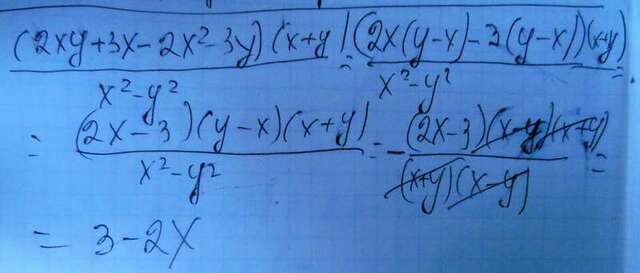 (2xy+3x-2x²-3y)(x+y)/(x²-y²) = (2x(y-x)-3(y-x))(x+y)/(x²-y²) =
= (2x-3)(y-x)(x+y)/(x²-y²) = -(2x-3)(x-y)(x+y)/((x+y)(x-y)) =
= 3-2x